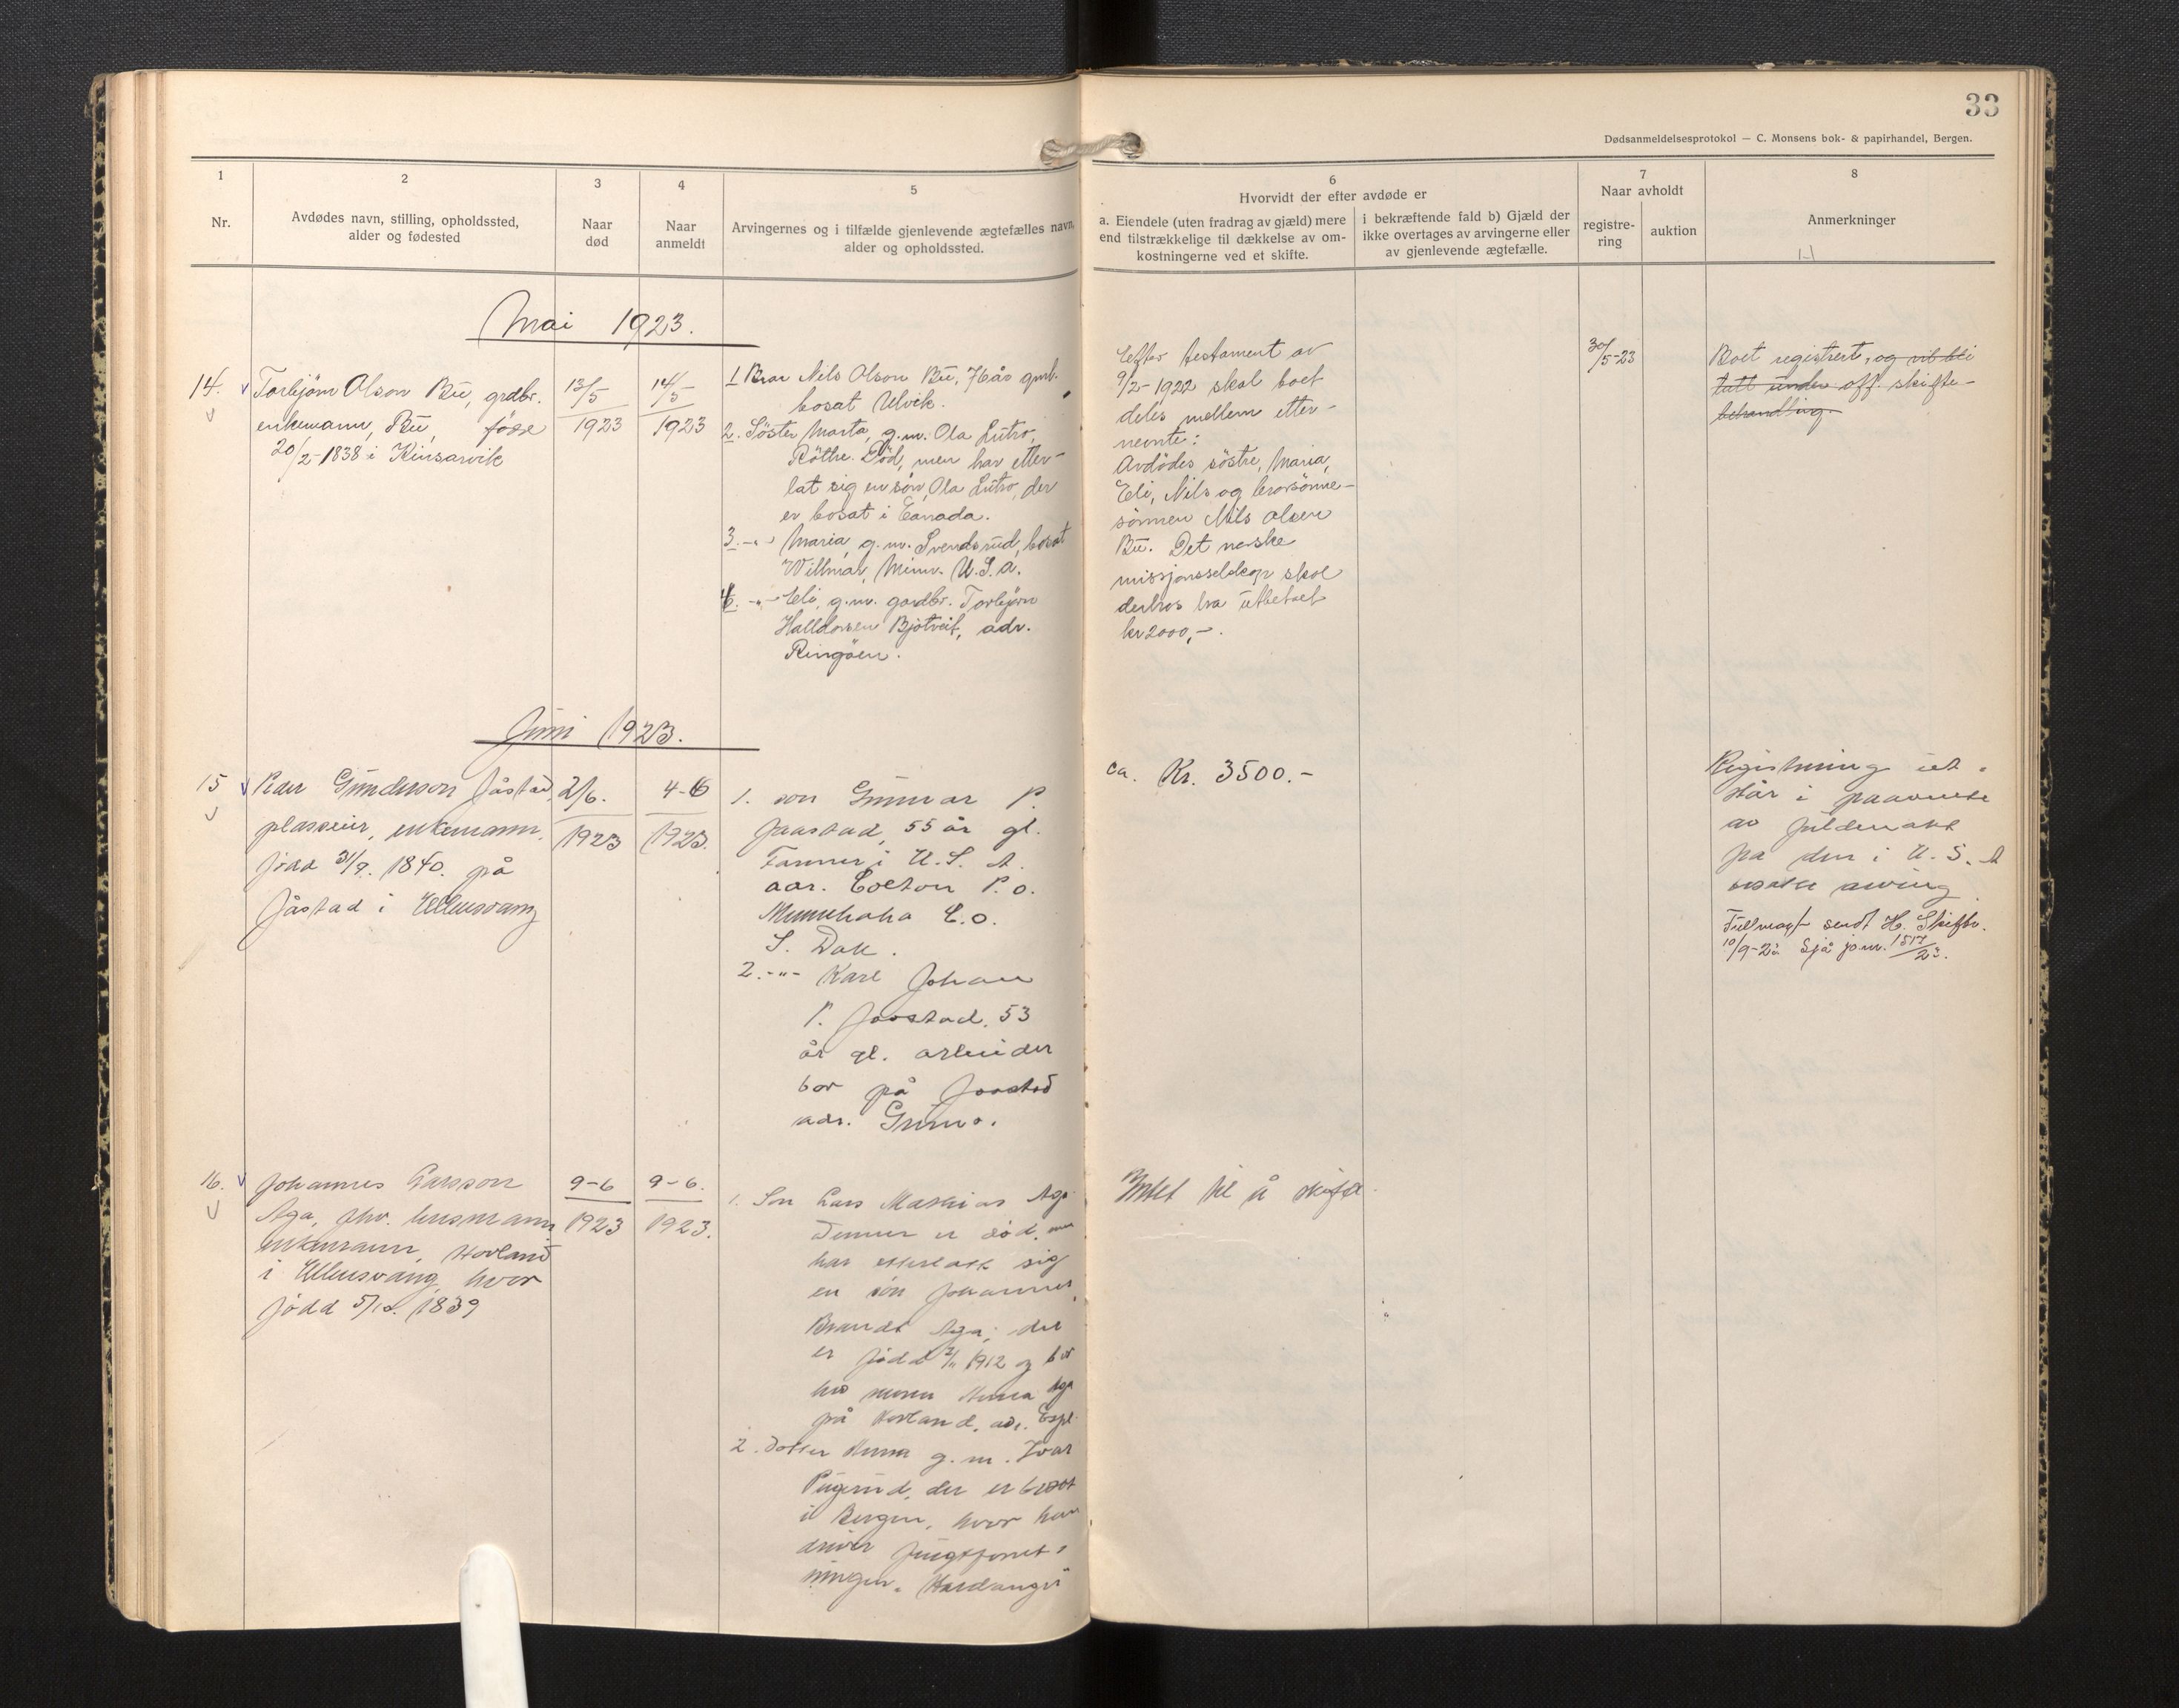 33
Dødsanmeldelsesprotokol — C. Monsens bok- & papirhandel, Bergen.
1
Nr.
2
Avdødes navn, stilling, opholdssted,
alder og fødested
3
Naar
død
4
Naar
anmeldt
5
Arvingernes og i tilfælde gjenlevende ægtefælles navn,
alder og opholdssted.
6
Hvorvidt der efter avdøde er
a. Eiendele (uten fradrag av gjæld) mere
end tilstrækkelige til dækkelse av om-
kostningerne ved et skifte.
i bekræftende fald b) Gjæld der
ikke overtages av arvingerne eller
av gjenlevende ægtefælle.
7
Naar avholdt
registre-
ring
auktion
8
Anmerkninger
Mai 1923.
14.
Torbjörn Olson Bu, grdbr.
enkemann, Bu, född
20/2-1838 i Kinsarvik
13/5
1923
14/5
1923
1 Bror Nils Olson Bu, 76 år
bosat Ulvik.
2. Söster Marta, g.m. Ola Lutro,
Död, men har etter-
lat sig en sön, Ola Lutro, der
er bosat i Canada.
3. -"- Maria, g.m. Svendsrud, bosat
Willmar, Minn. U.S.A.
-"- Eli, g.m. gardbr. Torbjörn
Halldorsen Bjotveit, adr.
Ringöen.
Efter testament av
9/2-1922 skal boet
deles mellem etter-
nevnte:
Avdödes söstre, Maria,
Eli, Nils og brorsönne-
sönnen Nils Olsen
Bu. Det norske
missjonsselskap skal
derhos ha utbetalt
kr 2000,-.
30/5-23
Boet registrert, og vil bli
tatt under off. skifte-
behandling.
Juni 1923.
15
Gunderson Jåstad,
plasseier, enkemann.
född 31/9. 1840. på
Jåstad i Ellensvang
2/6.
1923
4-6
1923.
1. son Gunnar P.
Jaastad, 55 år gl.
Farmer i U.S.A.
adr. Colton P.O.
Minnehaha C.O.
S. Dak.
2. -"- Karl Johan
P. Jaastad, 53
år gl. arbeider
bor på Jaastad
adr. Grimo.
ca. Kr. 3500.-
Registrering ut-
står i paavente
av fuldmakt
fra den i U.S.A
bosatte arving
Fullmagt sendt H. Skiftr.
10/9-23 Sjå jonr. 1517/23.
16.
Johannes Larsson
Aga, fhv. husmann
enkemann, Hovland
i Ellensvang, hvor
född 5/10. 1839
9-6
1923
9-6.
1923.
1. Son Lars Mathias Aga
Denne er död, men
har etterlatt sig
en sön Johannes
Brandt Aga, der
er född 1912 og bor
hos moren Anna Aga
på Hovland, adr. Espe.
2. Dotter Anna g.m. Ivar
der er bosat
i Bergen, hvor han
driver
ningen "Hardanger"
Intet til å skifte.